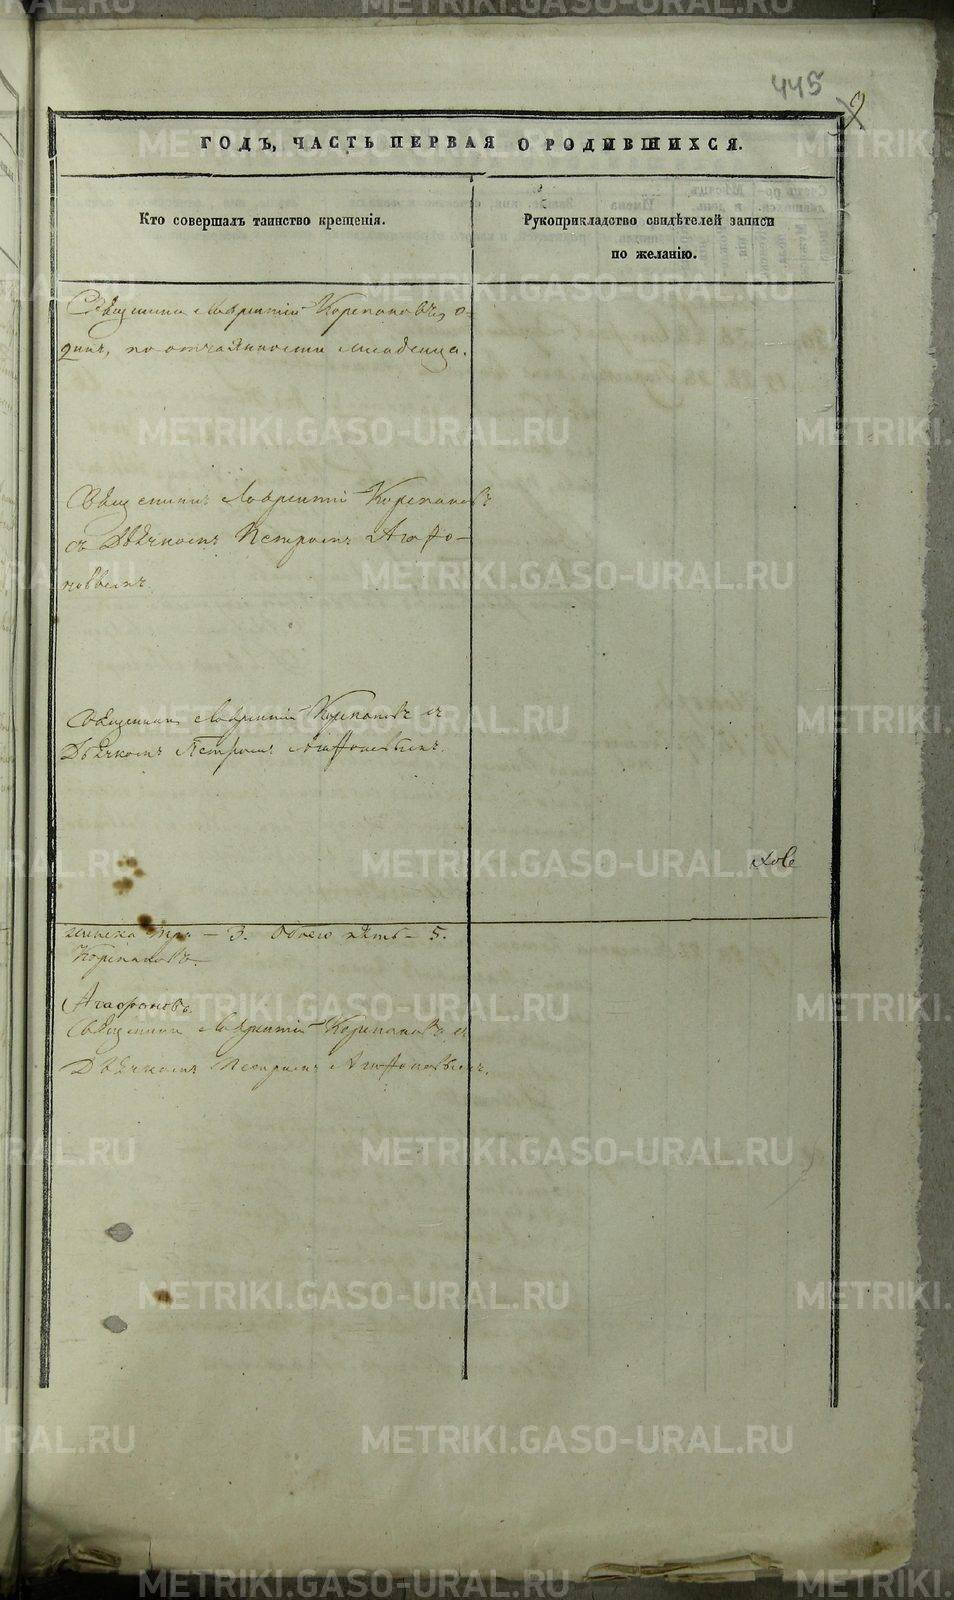 445
2
ГОДЪ, ЧАСТЬ ПЕРВАЯ О РОДИВШИХСЯ.
Кто совершалъ таинство крещенія.
Рукоприкладство свидѣтелей записи
по желанію.
Священникъ Лаврентій Корепановъ, о-
динъ, по отчаянности младенца.
Священникъ Лаврентій Корепановъ
съ Дьячкомъ Петромъ Агафо-
новымъ.
Священникъ Лаврентій Корепановъ съ
Дьячкомъ Петромъ Агафоновымъ.
женска три — 3. Обоего пять — 5.
Корепановъ.
Агафоновъ.
Священникъ Лаврентій Корепановъ съ
Дьячкомъ Петромъ Агафоновымъ.
METRIKI.GASO-URAL.RU